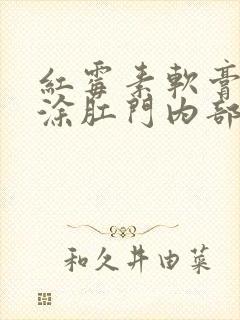 紅霉素軟膏
涂肛門內部
和久井由菜